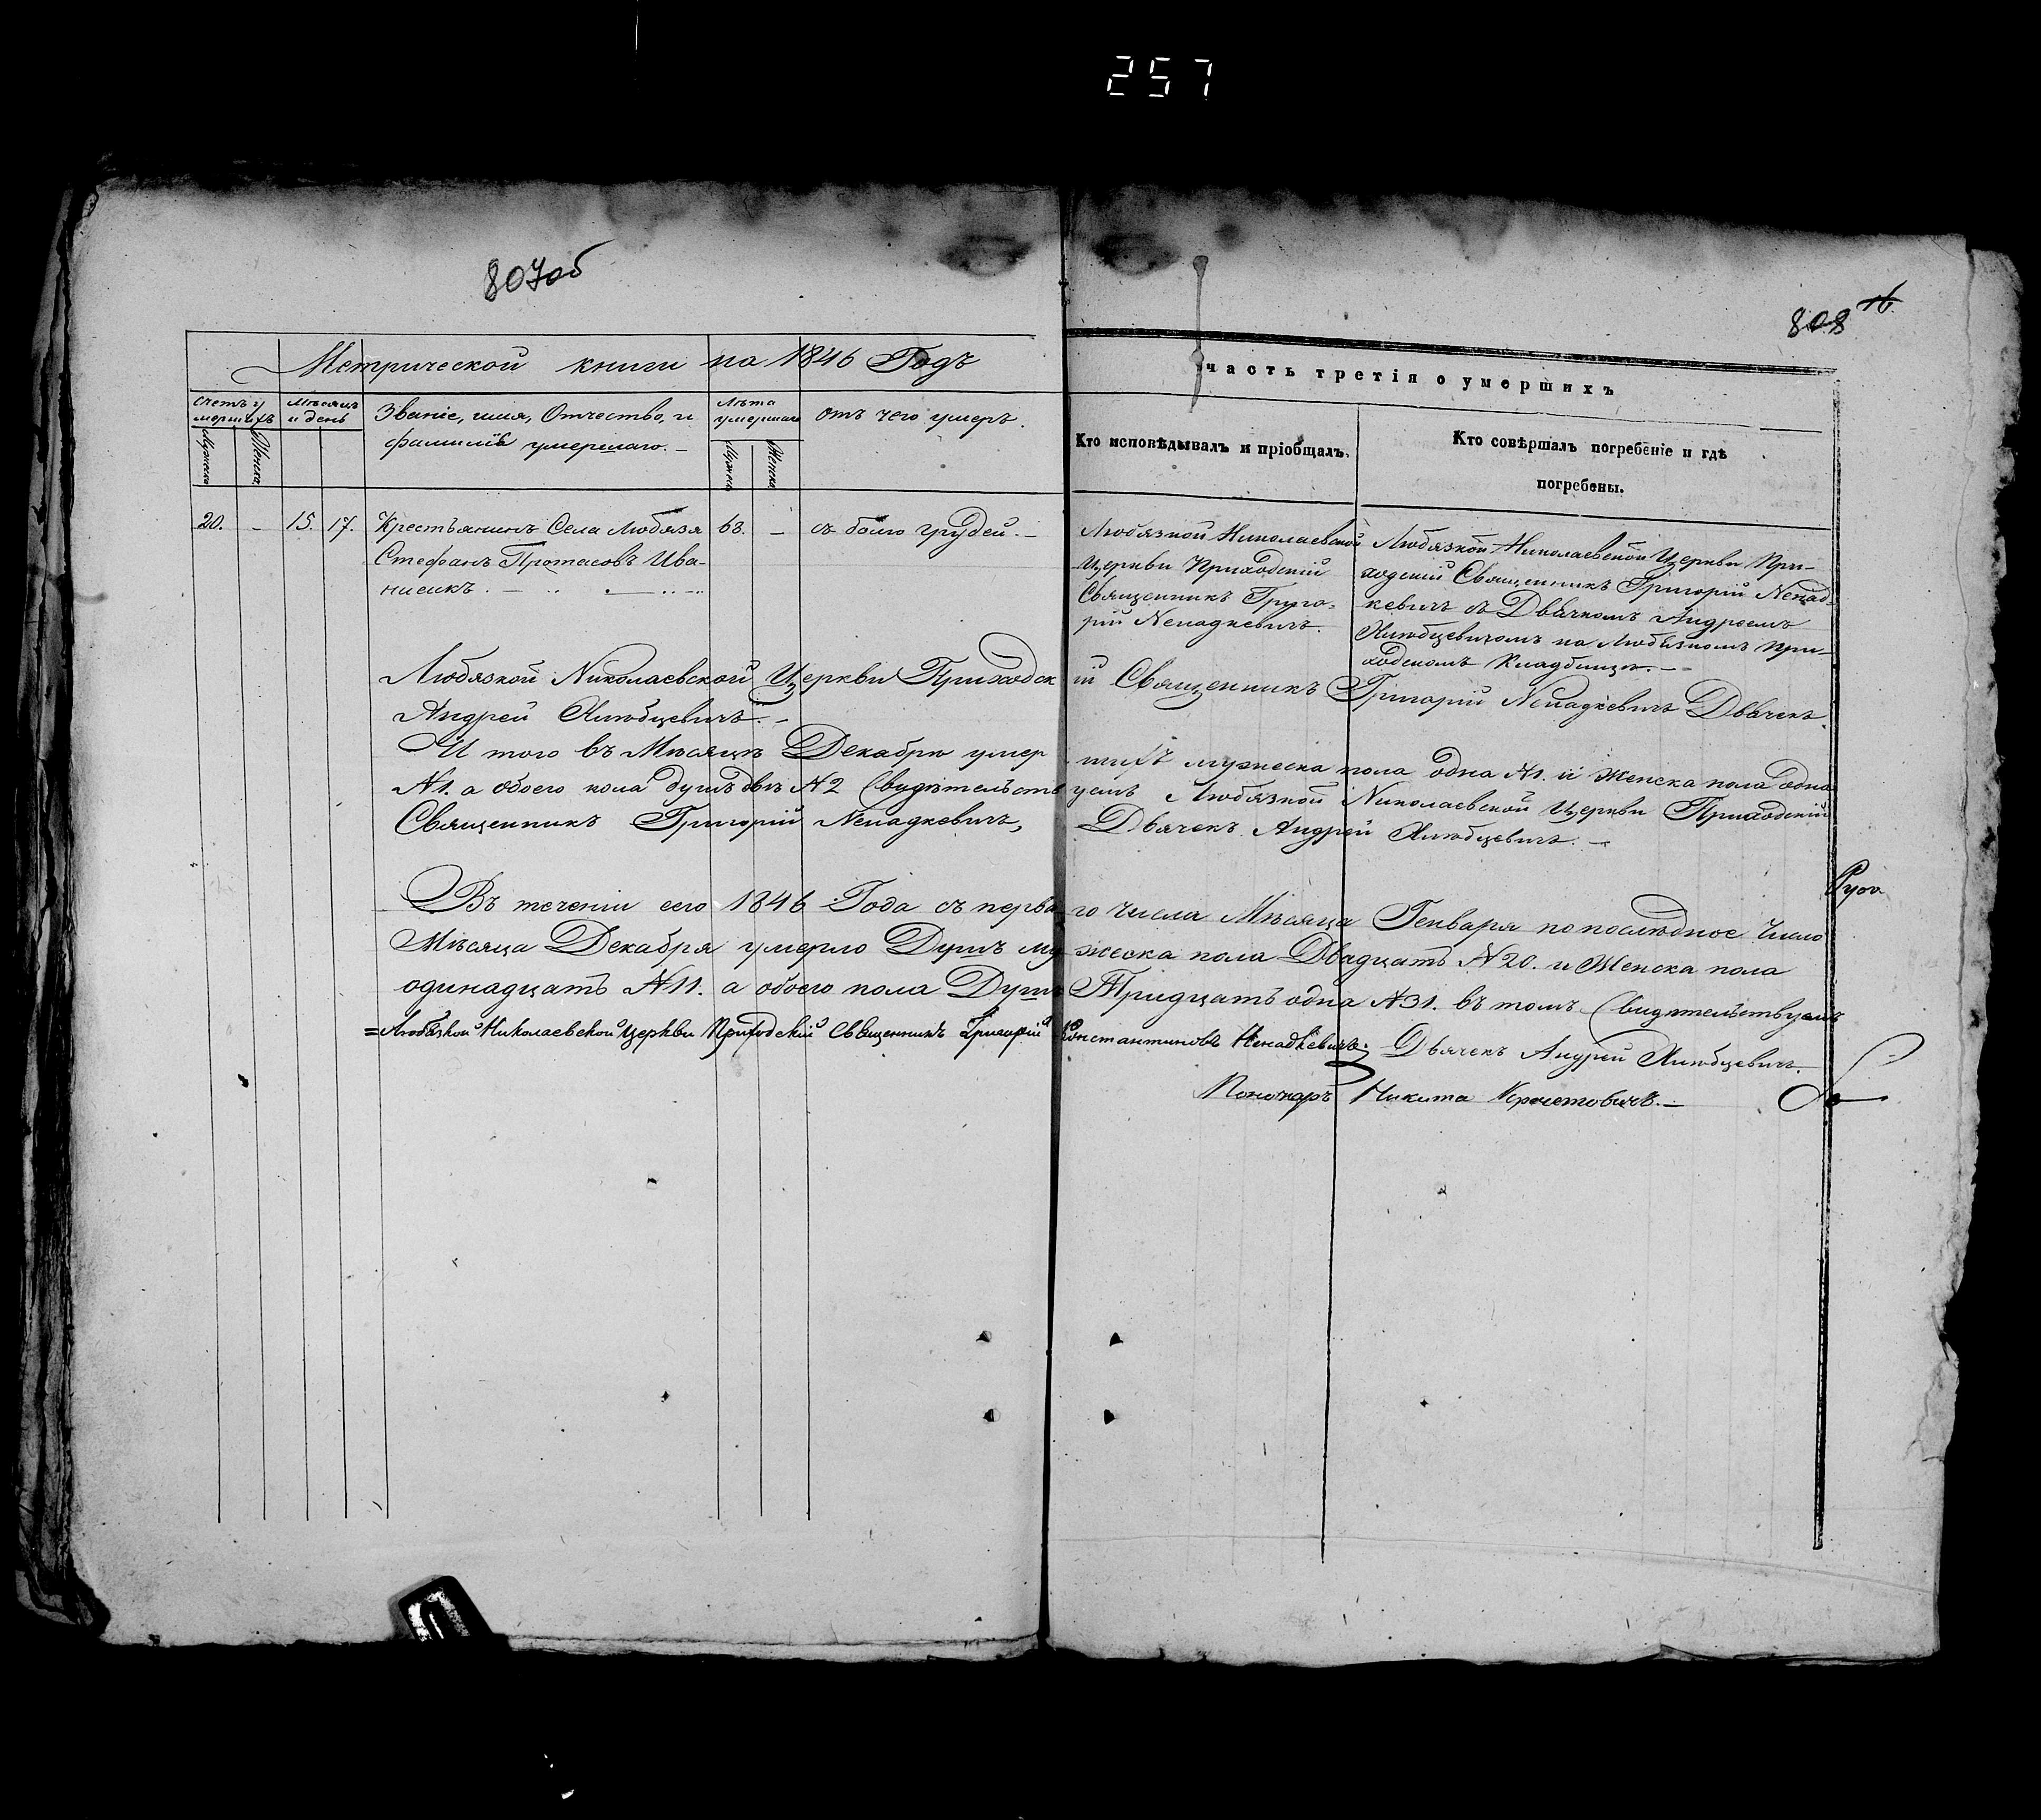 257
807об
808
Метрической книги на 1846 Годъ
часть третія о умершихъ
Счетъ у
мершихъ
Мѣсяцъ
и день
Званіе, имя, Отчество, и
фамиліѣ умершаго. –
Лѣта
умершаго
отъ чего умеръ.
Мужеска
Женска
Мужеска
Женска
Кто исповѣдывалъ и пріобщалъ.
Кто совѣршалъ погребеніе и гдѣ
погребены.
20. – 15. 17. Крестьянинъ Села Любязя 63. – съ болю грудей. –
Стефанъ Протасовъ Ива-
нисикъ. –
Любязкой Николаевской
Церкви Приходскій
Священникъ Григо-
рій Ненадкевичъ.
Любязкой Николаевской Церкви При-
ходскій Священникъ Григорій Ненад-
кевичъ съ Дьячкомъ Андреемъ
Хлюбцевичомъ на Любязкомъ При-
ходскомъ Кладбищѣ. –
Любязкой Николаевской Церкви Приходскій Священникъ Григорій Ненадкевичъ Дьячекъ
Андрей Хлюбцевичъ. –
И того въ Мѣсяцѣ Декабрю умершихъ мужеска пола одна №1. и женска пола одна
№1. а обоего пола душъ двѣ №2 Свидѣтельствуемъ Любязкой Николаевской Церкви Приходскій
Священникъ Григорій Ненадкевичъ, Дьячекъ Андрей Хлюбцевичъ. –
Въ теченіи сего 1846 Года съ перваго числа Мѣсяца Генваря по послѣдное Число
Мѣсяца Декабря умерло Душъ мужеска пола Двадцать №20. и Женска пола
одинадцать №11. а обоего пола Душъ Тридцать одна №31. въ томъ Свидѣтельствуемъ
=Любязкой Николаевской Церкви Приходскій Священникъ Григорій Константиновъ Ненадкевичъ. Дьячекъ Андрей Хлюбцевичъ.
Пономаръ Никита